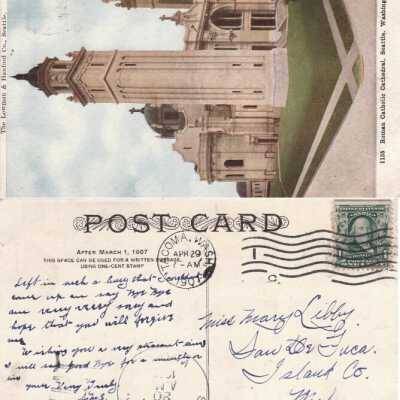 The Lowman & Hanford Co., Seattle.
1135 Roman Catholic Cathedral, Seattle, Washing
POST CARD
AFTER MARCH 1, 1907
THIS SPACE CAN BE USED FOR A WRITTEN MESSAGE,
USING ONE-CENT STAMP
TACOMA, WASH.
APR 29
7-AM
1908
1
C.
Left in such a hurry that I
came up an say Bye Bye
am very very sorry and
hope that you will forgive
me.
Wishing you a very pleasant time
I will say good Bye for a
your Very Truly
Miss Mary Libby
San De Fuca
Island Co.